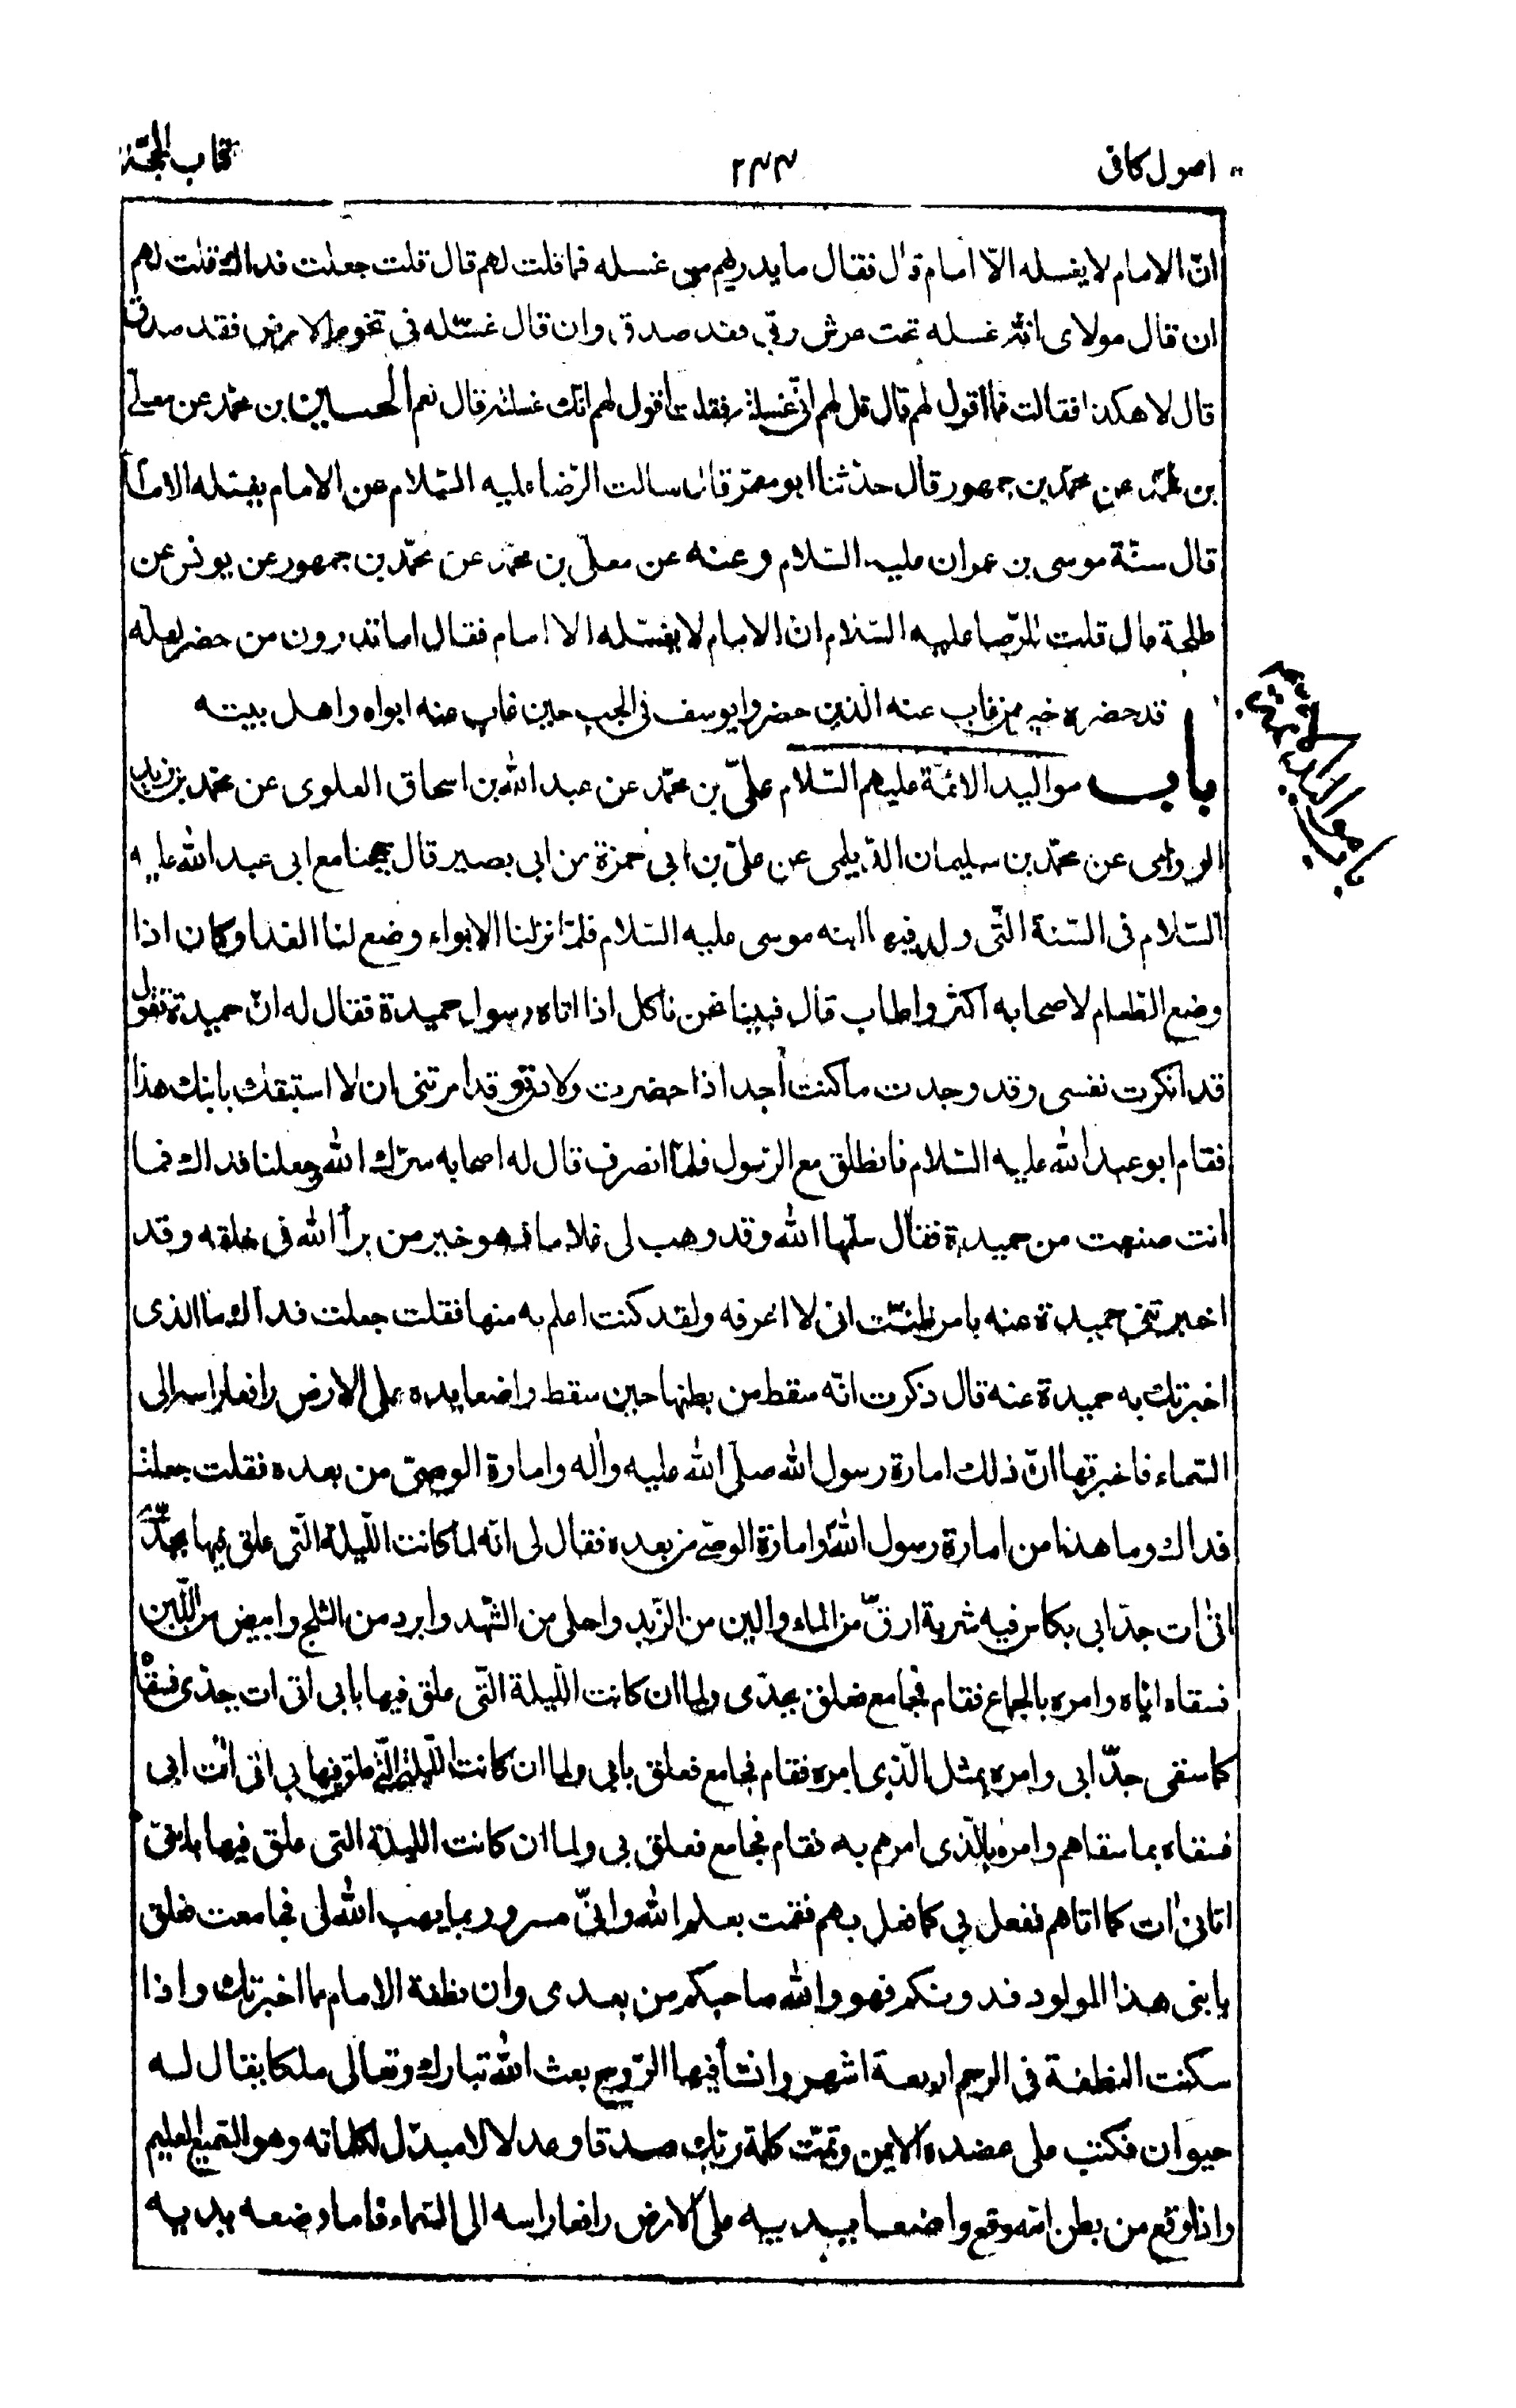 اصول كافى
٢٤٤
كتاب الحجّة
انّ الامام لا يغسله الّا امام قال فقال ما يدريهم من غسله فما قلت لهم قال قلت جعلت فداك قلت لهم
ان قال مولاى انّه غسله تحت عرش ربّى فقد صدق وان قال غسّله فى تخوم الارض فقد صدق
قال لا هكذا فقالت فما اقول لهم قال قل لهم انّى غسلته فقلت اقول لهم انّك غسلته قال نعم الحسين بن محمّد عن معلّى
بن محمّد عن محمّد بن جمهور قال حدّثنا ابو معمّر قال سالت الرّضا عليه السّلام عن الامام يغسّله الامام
قال سنّة موسى بن عمران عليه السّلام وعنه عن معلّى بن محمّد عن محمّد بن جمهور عن يونس عن
طلحة قال قلت للرّضا عليه السّلام انّ الامام لا يغسّله الا امام فقال اما تدرون من حضر لعلّه
قد حضره خير ممن غاب عنه الّذين حضروا يوسف فى الجب حين غاب عنه ابواه واهل بيته
باب مواليد الائمّة عليهم السّلام علىّ بن محمّد عن عبد اللّه بن اسحاق العلوى عن محمّد بن زيد
الرزامى عن محمّد بن سليمان الدّيلمى عن علىّ بن ابى حمزة عن ابى بصير قال حججنا مع ابى عبد اللّه عليه
السّلام فى السّنة الّتى ولد فيها ابنه موسى عليه السّلام فلمّا نزلنا الابواء وضع لنا الغدا وكان اذا
وضع الطّعام لاصحابه اكثر واطاب قال فبينا نحن ناكل اذا اتاه رسول حميدة فقال له انّ حميدة تقول
قد انكرت نفسى وقد وجدت ما كنت اجد اذا حضرت ولادتى وقد امرتنى ان لا استبقك بابنك هذا
فقام ابو عبد اللّه عليه السّلام فانطلق مع الرّسول فلمّا انصرف قال له اصحابه سرّك اللّه وجعلنا فداك فما
انت صنعت من حميدة فقال سلّمها اللّه وقد وهب لى غلاما فهو خير من برأ اللّه فى خلقه وقد
اخبرتنى حميدة عنه بامر ظنّت انى لا اعرفه ولقد كنت اعلم به منها فقلت جعلت فداك ما الذى
اخبرتك به حميدة عنه قال ذكرت انّه سقط من بطنها حين سقط واضعا يده على الارض رافعا راسه الى
السّماء فاخبرتها انّ ذلك امارة رسول اللّه صلّى اللّه عليه واله وامارة الوصىّ من بعده فقلت جعلت
فداك وما هذا من امارة رسول اللّه وامارة الوصىّ من بعده فقال لى انّه لما كانت اللّيلة الّتى علق فيها بجدّى
اتى ات جدّ ابى بكاس فيه شربة ارقّ من الماء والين من الزّبد واحلى من الشّهد وابرد من الثلج وابيض من اللّبن
فسقاه ايّاه وامره بالجماع فقام فجامع فعلق بجدّى ولما ان كانت اللّيلة الّتى علق فيها بابى اتى ات جدّى فسقاه
كما سقى جدّ ابى وامره بمثل الّذى امره فقام فجامع فعلق بابى ولما ان كانت اللّيلة الّتى علق فيها بى اتى ات ابى
فسقاه بما سقاهم وامره بالّذى امرهم به فقام فجامع فعلق بى ولما ان كانت الليلة التى علق فيها بابنى
اتانى ات كما اتاهم ففعل بى كما فعل بهم فقمت بعلم اللّه وانّى مسرور بما يهب اللّه لى فجامعت فعلق
بابنى هذا المولود فدونكم فهو واللّه صاحبكم من بعدى وان نطفة الامام مما اخبرتك واذا
سكنت النطفة فى الرحم اربعة اشهر وانشأ فيها الرّوح بعث اللّه تبارك وتعالى ملكا يقال له
حيوان فكتب على عضده الايمن وتمّت كلمة ربّك صدقا وعدلا لا مبدّل لكلماته وهو السّميع العليم
واذا وقع من بطن امّه وقع واضعا يديه على الارض رافعا راسه الى السّماء فاما وضعه يديه
باب مواليد الائمة